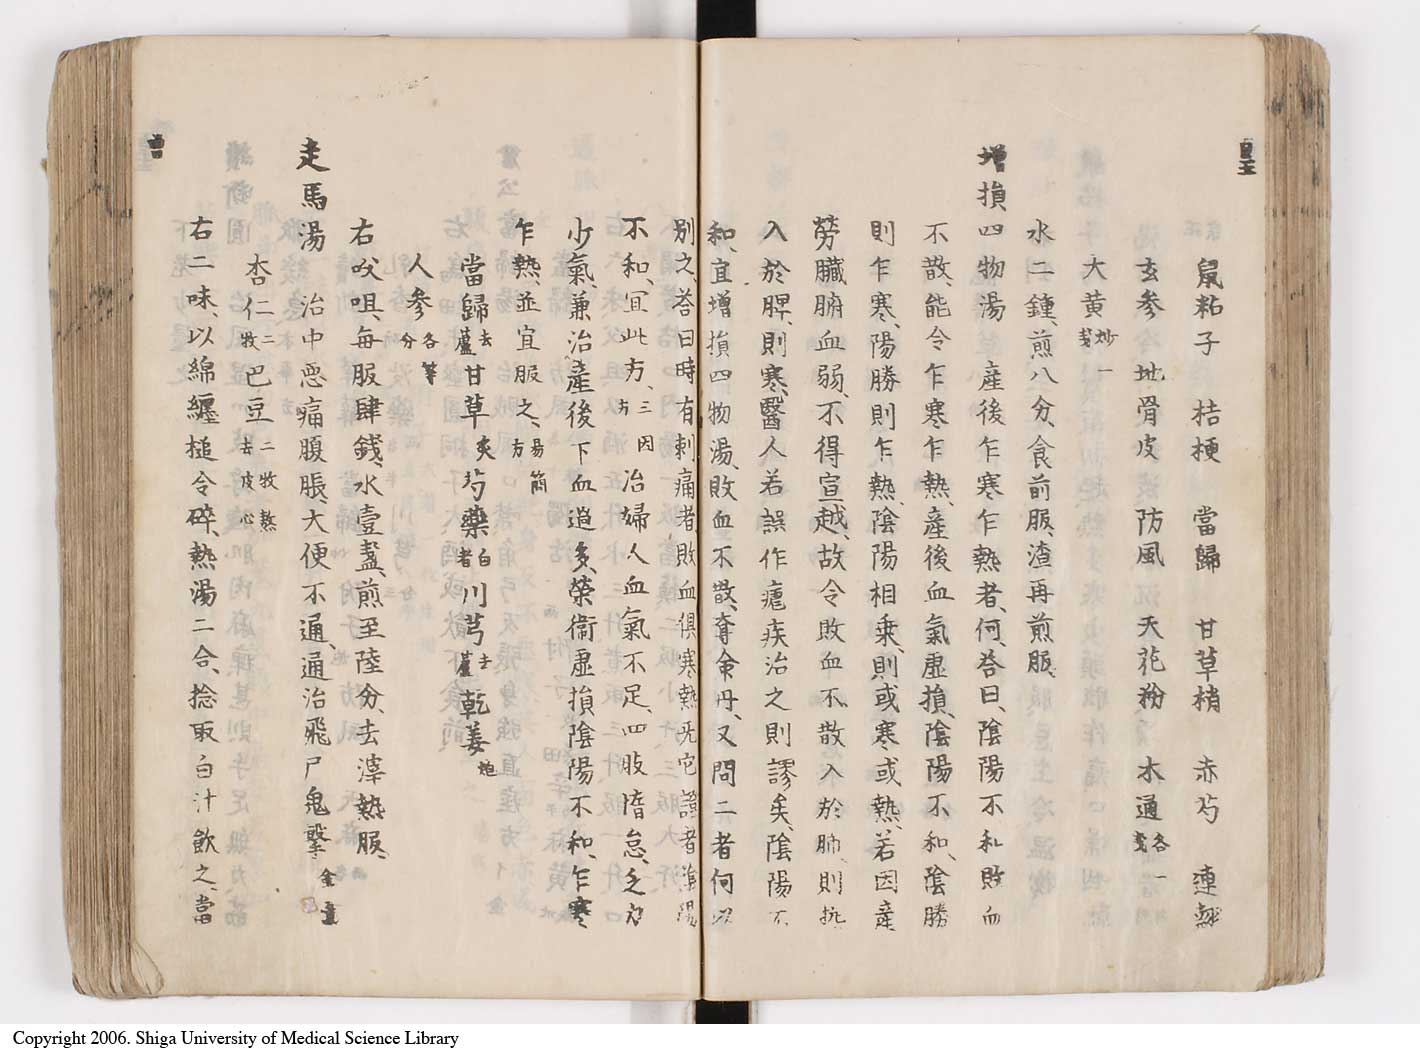 鼠粘子 桔梗 當歸 甘草梢 赤芍 連翹
玄参 地骨皮 防風 天花粉 木通各一戔
大黄炒一戔
水二鍾、煎八分、食前服、渣再煎服、
增損四物湯 産後乍寒乍熱者、何、荅曰、陰陽不和敗血
不散、能令乍寒乍熱、産後血氣虚損、陰陽不和、陰勝
則乍寒、陽勝則乍熱、陰陽相乗、則或寒或熱、若因産
勞臟腑血弱、不得宣越、故令敗血不散、入於肺、則熱
入於脾、則寒、醫人若誤作瘧疾治之則謬矣、陰陽不
和、宜增損四物湯、敗血不散、奪命丹、又問二者何以
別之、荅曰時有刺痛者敗血、俱寒熱无它證者陰陽
不和、冝此方、三因方 冶婦人血氣不足、四肢惰怠、乏力
少氣、兼治産後下血過多、榮衞虚損、陰陽不和、乍寒
乍熱、並宜服之、易簡方
當歸去蘆 甘草炙 芍藥白者 川芎去蘆 乾姜炮
人参各等分
右㕮咀、毎服肆錢、水壹盞、煎至陸分、去滓熱服、
走馬湯 治中惡痛腹脹、大便不通、通治飛尸鬼擊 金匱
杏仁二牧 巴豆二牧去皮心熬
右二味、以綿纒槌令碎、熱湯二合、捻取白汁飲之、當